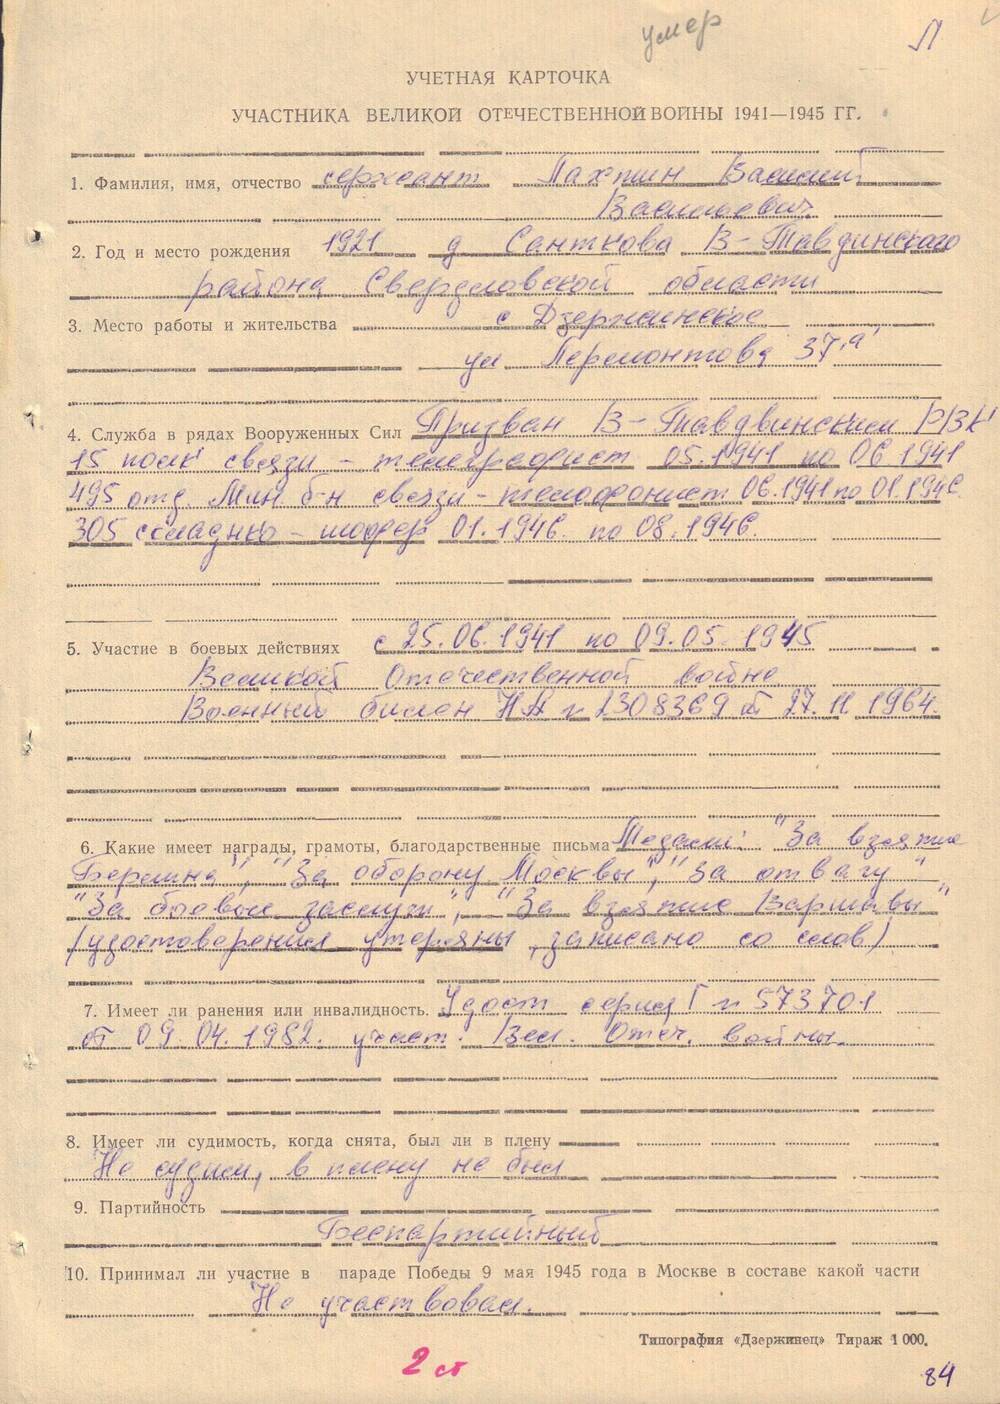 умер
Л
УЧЕТНАЯ КАРТОЧКА
УЧАСТНИКА ВЕЛИКОЙ ОТЕЧЕСТВЕННОЙ ВОЙНЫ 1941—1945 ГГ.
1. Фамилия, имя, отчество сержант Лахтин Василий
Васильевич
2. Год и место рождения 1921 д Санткова В-Тавдинского
района Свердловской области
3. Место работы и жительства с Дзержинское
ул Лермонтова 37 "а"
4. Служба в рядах Вооруженных Сил Призван В-Тавдвинским РВК
15 полк связи – телеграфист 05.1941 по 06 1941
495 отд. Мин. б-н связи – телефонист 06.1941 по 01.1946.
305 – шофер 01.1946. по 08.1946.
5. Участие в боевых действиях с 25.06.1941 по 09.05.1945
Великой Отечественной войне
Военный билет НА № 2308369 от 27.11.1964.
6. Какие имеет награды, грамоты, благодарственные письма Медали: "За взятие
Берлина", "За оборону Москвы", "За отвагу"
"За боевые заслуги", "За взятие Варшавы"
(удостоверения утеряны, записано со слов)
7. Имеет ли ранения или инвалидность. Удост серия Г № 573701
от 09.04.1982. участ. Вел. Отеч. войны.
8. Имеет ли судимость, когда снята, был ли в плену
Не судим, в плену не был
9. Партийность
Беспартийный
10. Принимал ли участие в параде Победы 9 мая 1945 года в Москве в составе какой части
Не участвовал.
Типография «Дзержинец» Тираж 1 000.
2 ст
84